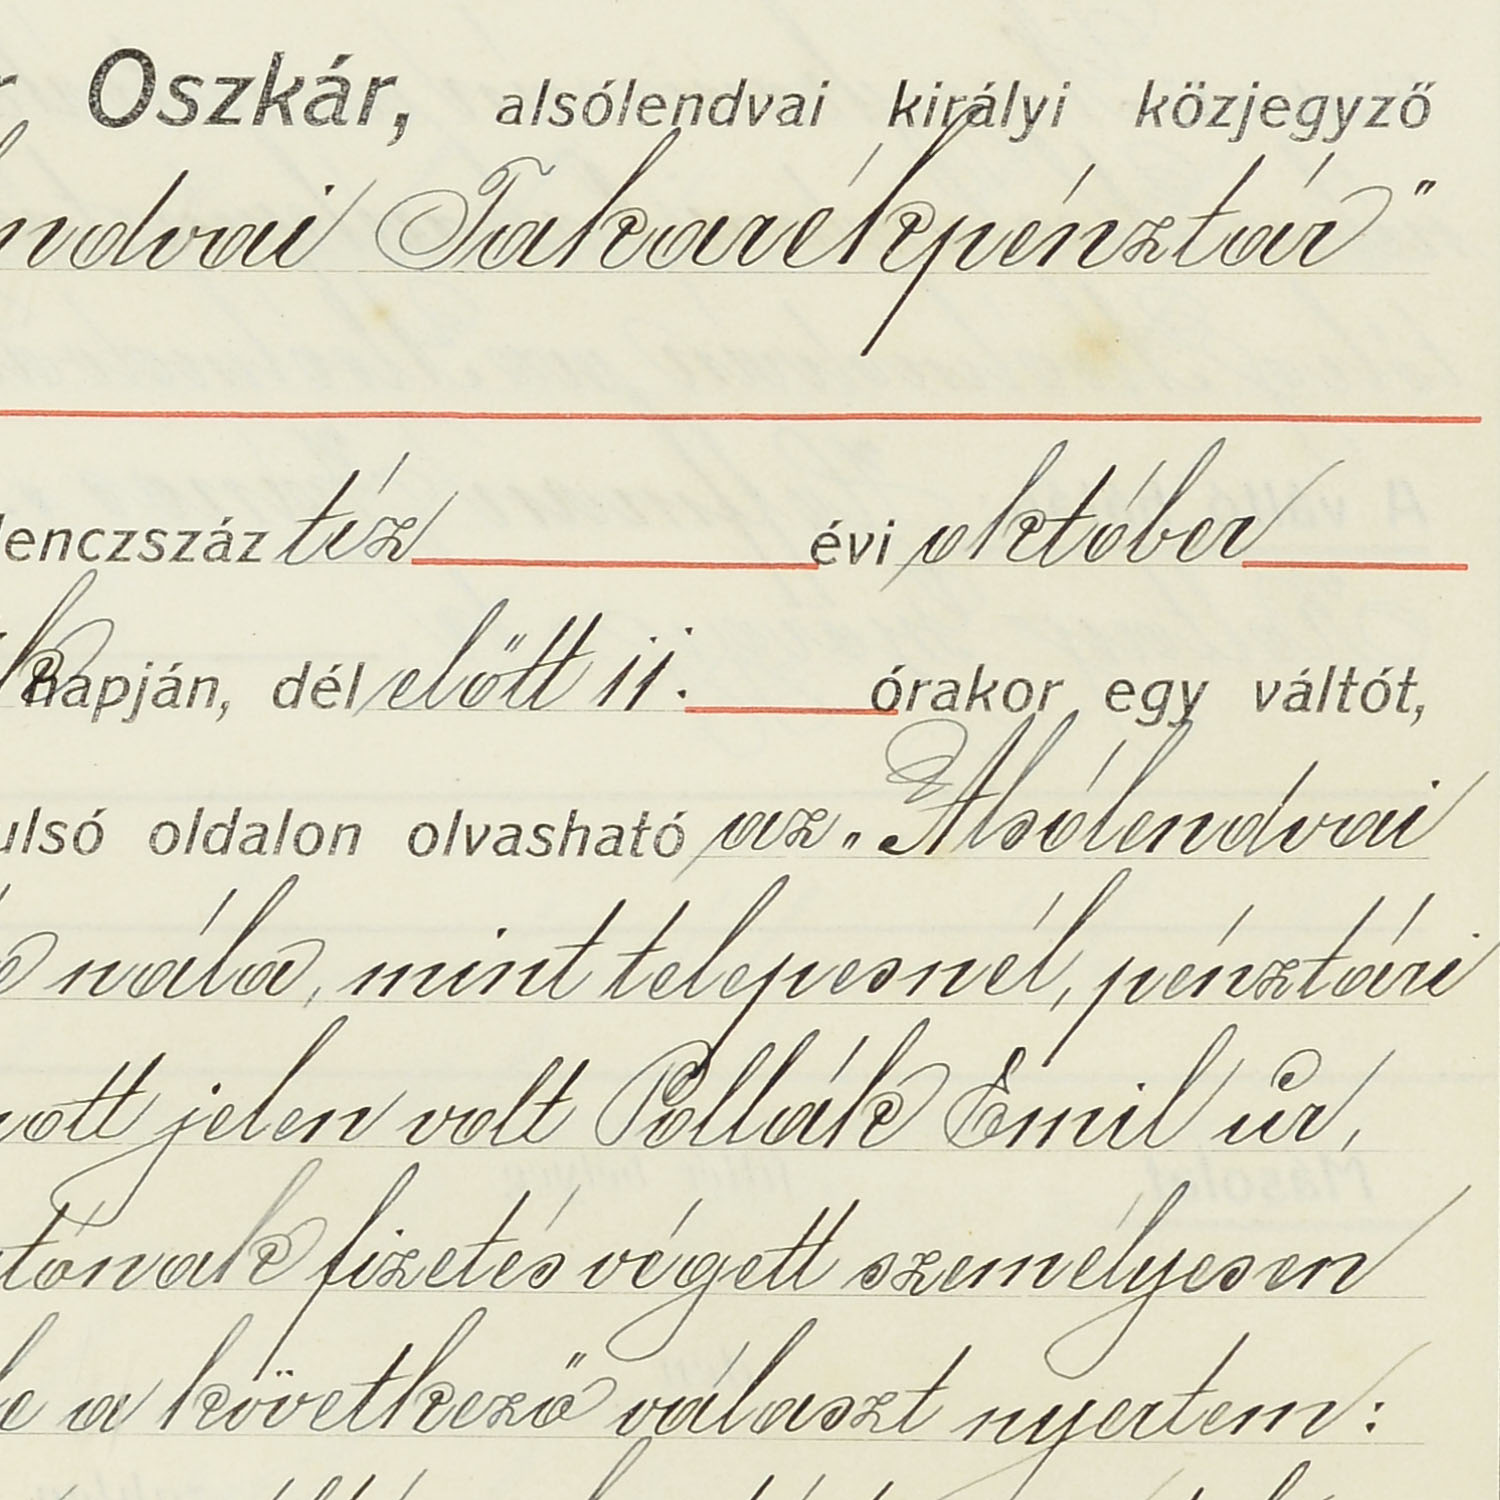 r Oszkár, alsólendvai királyi közjegyző
ndvai Takarékpénztár"
lenczszáz tíz évi október
k napján, dél előtt 11. órakor egy váltót,
ulsó oldalon olvasható az „Alsólendvai
nála, mint telepesnél, pénztári
ott jelen volt Pollák Emil úr,
tónak fizetés végett személyesen
e a következő választ nyertem: